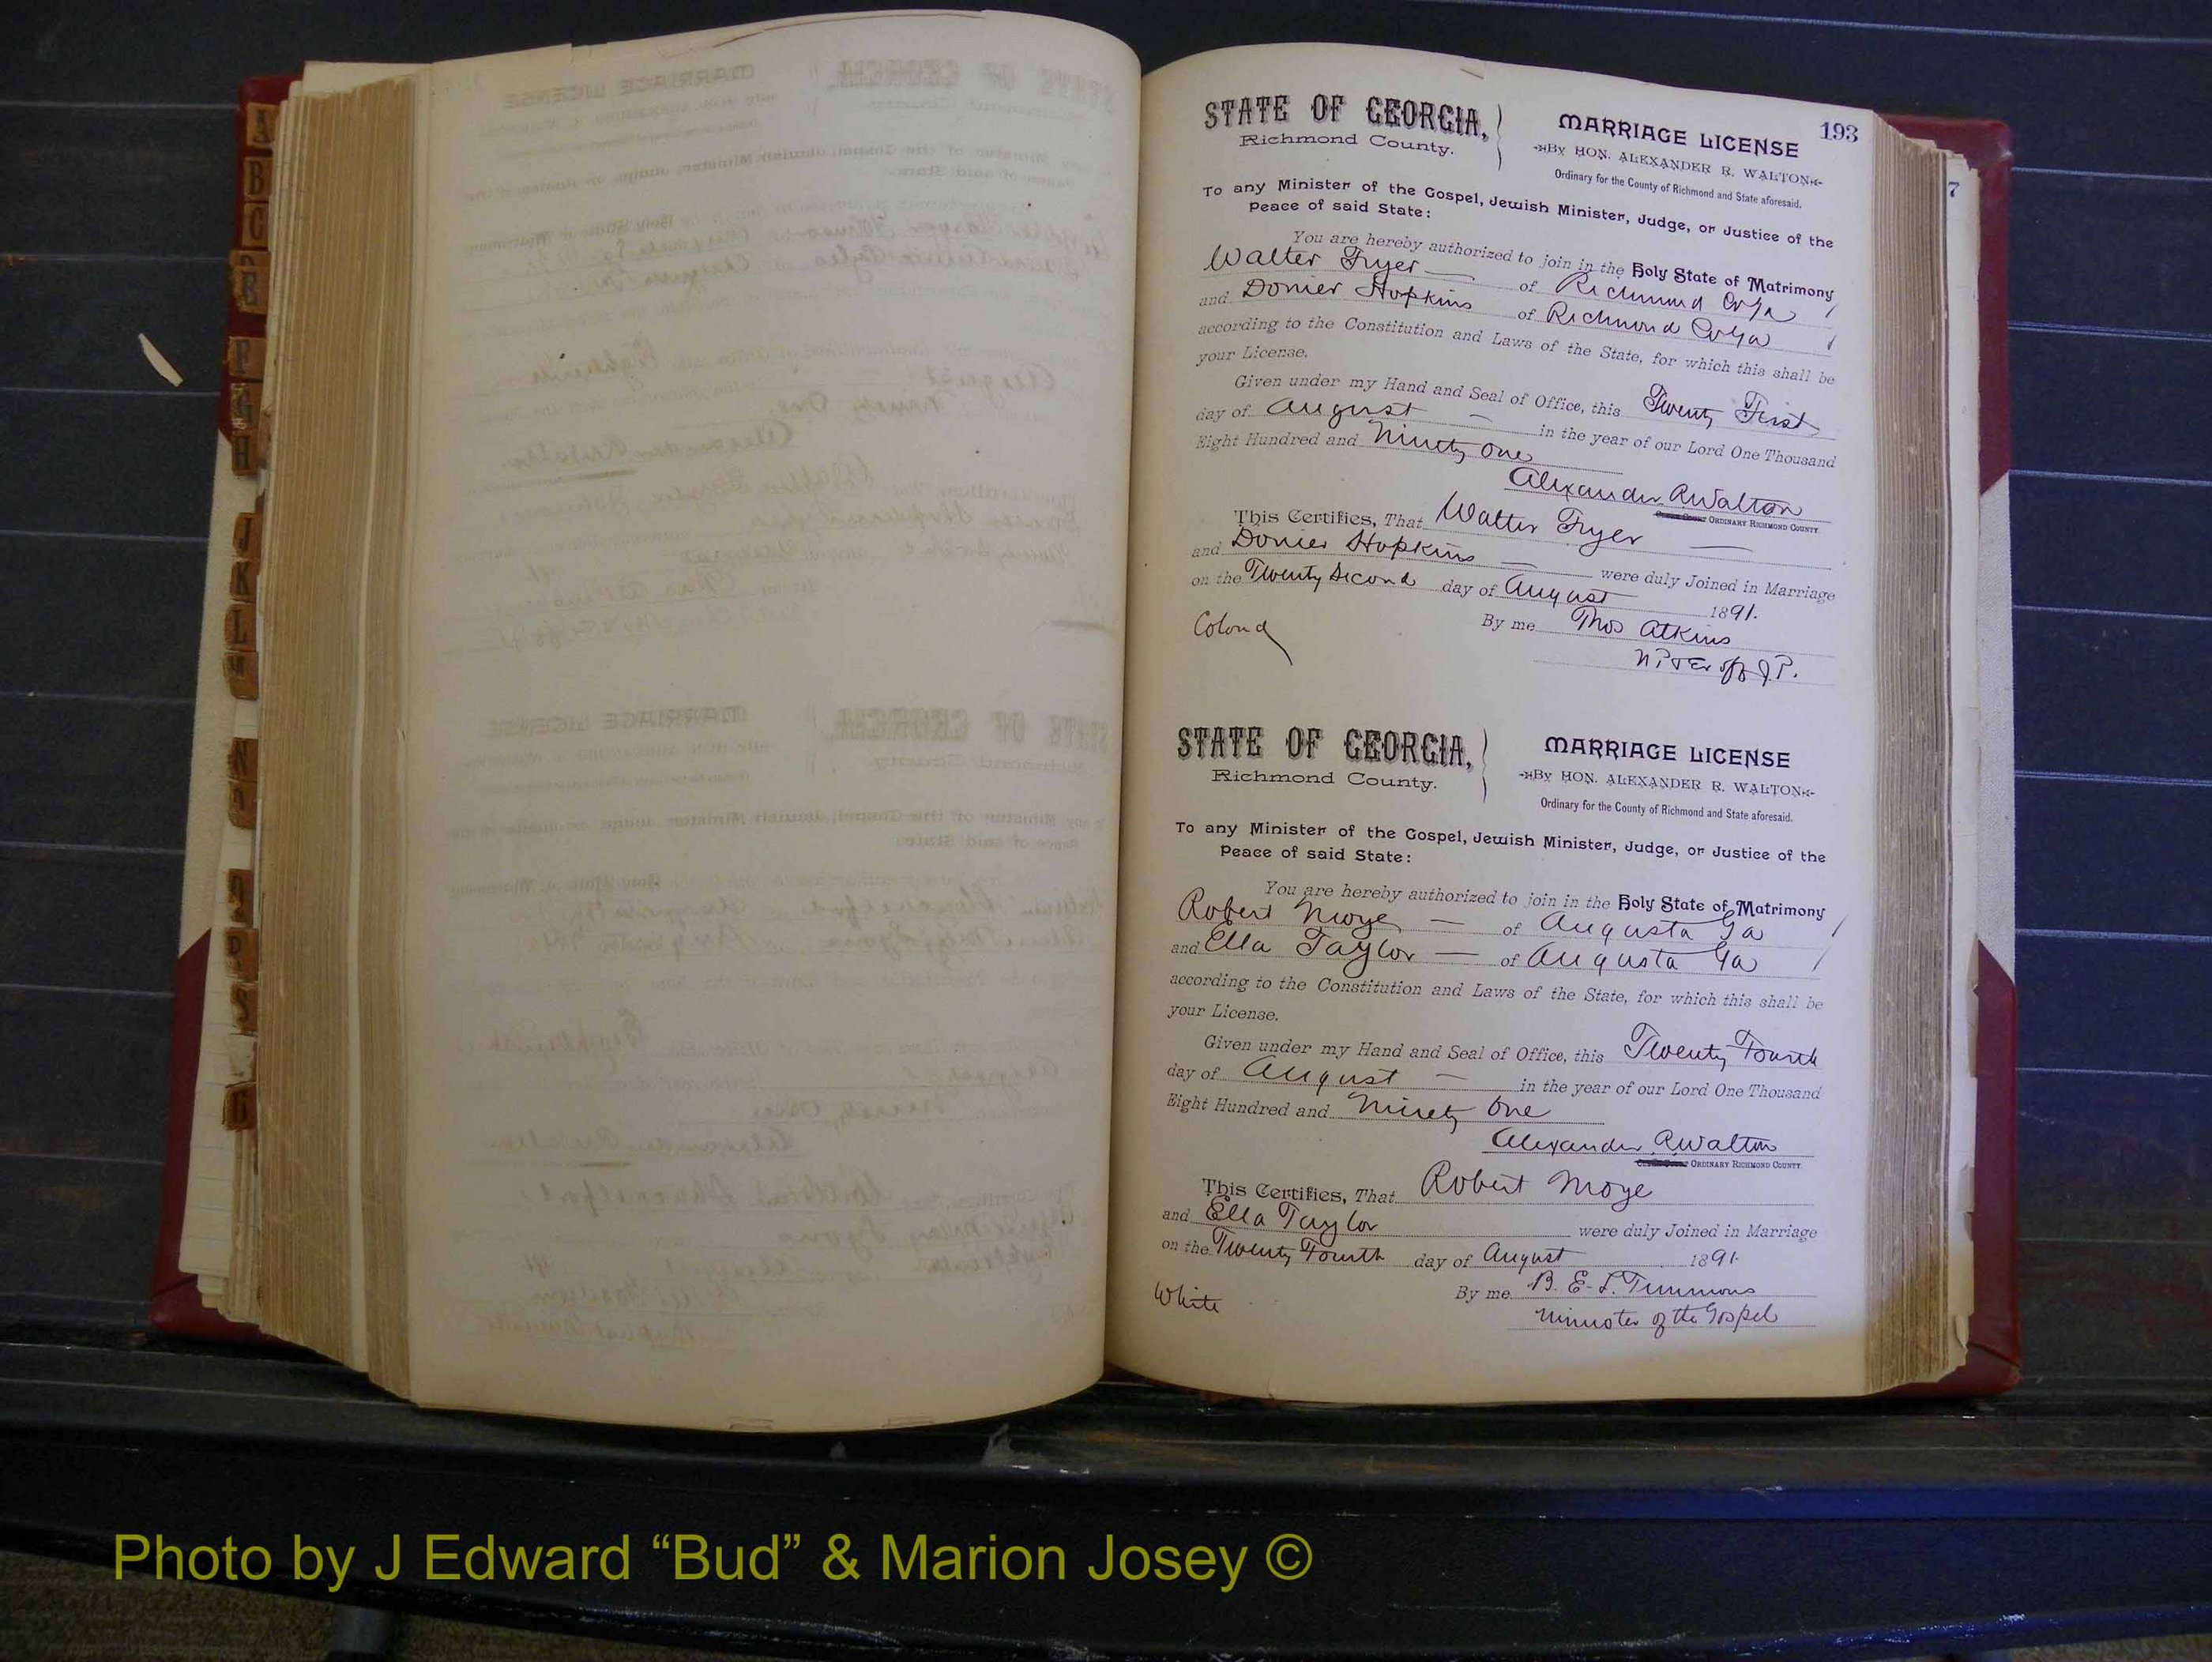 A
B
C
E
F
G
H
J
K
L
M
N
S
G
193
7
STATE OF GEORGIA,
Richmond County.
MARRIAGE LICENSE
By HON. ALEXANDER R. WALTON
Ordinary for the County of Richmond and State aforesaid.
To any Minister of the Gospel, Jewish Minister, Judge, or Justice of the
Peace of said State:
You are hereby authorized to join in the Holy State of Matrimony
Walter Fryer of Richmond Co Ga
and Donier Hopkins of Richmond Co Ga
according to the Constitution and Laws of the State, for which this shall be
your License.
Given under my Hand and Seal of Office, this Twenty First
day of August in the year of our Lord One Thousand
Eight Hundred and Ninety One
Alexander R Walton
ORDINARY RICHMOND COUNTY.
This Certifies, That Walter Fryer
and Donier Hopkins were duly Joined in Marriage
on the Twenty Second day of August 1891.
By me Thos Atkins
Colored
N P & Ex off J. P.
STATE OF GEORGIA,
Richmond County.
MARRIAGE LICENSE
By HON. ALEXANDER R. WALTON
Ordinary for the County of Richmond and State aforesaid.
To any Minister of the Gospel, Jewish Minister, Judge, or Justice of the
Peace of said State:
You are hereby authorized to join in the Holy State of Matrimony
Robert Moye — of Augusta Ga
and Ella Taylor — of Augusta Ga
according to the Constitution and Laws of the State, for which this shall be
your License.
Given under my Hand and Seal of Office, this Twenty Fourth
day of August in the year of our Lord One Thousand
Eight Hundred and Ninety One
Alexander R Walton
ORDINARY RICHMOND COUNTY.
This Certifies, That Robert Moye
and Ella Taylor were duly Joined in Marriage
on the Twenty Fourth day of August 1891.
By me B. E. L. Timmons
White
Minister of the Gospel
Photo by J Edward “Bud” & Marion Josey ©